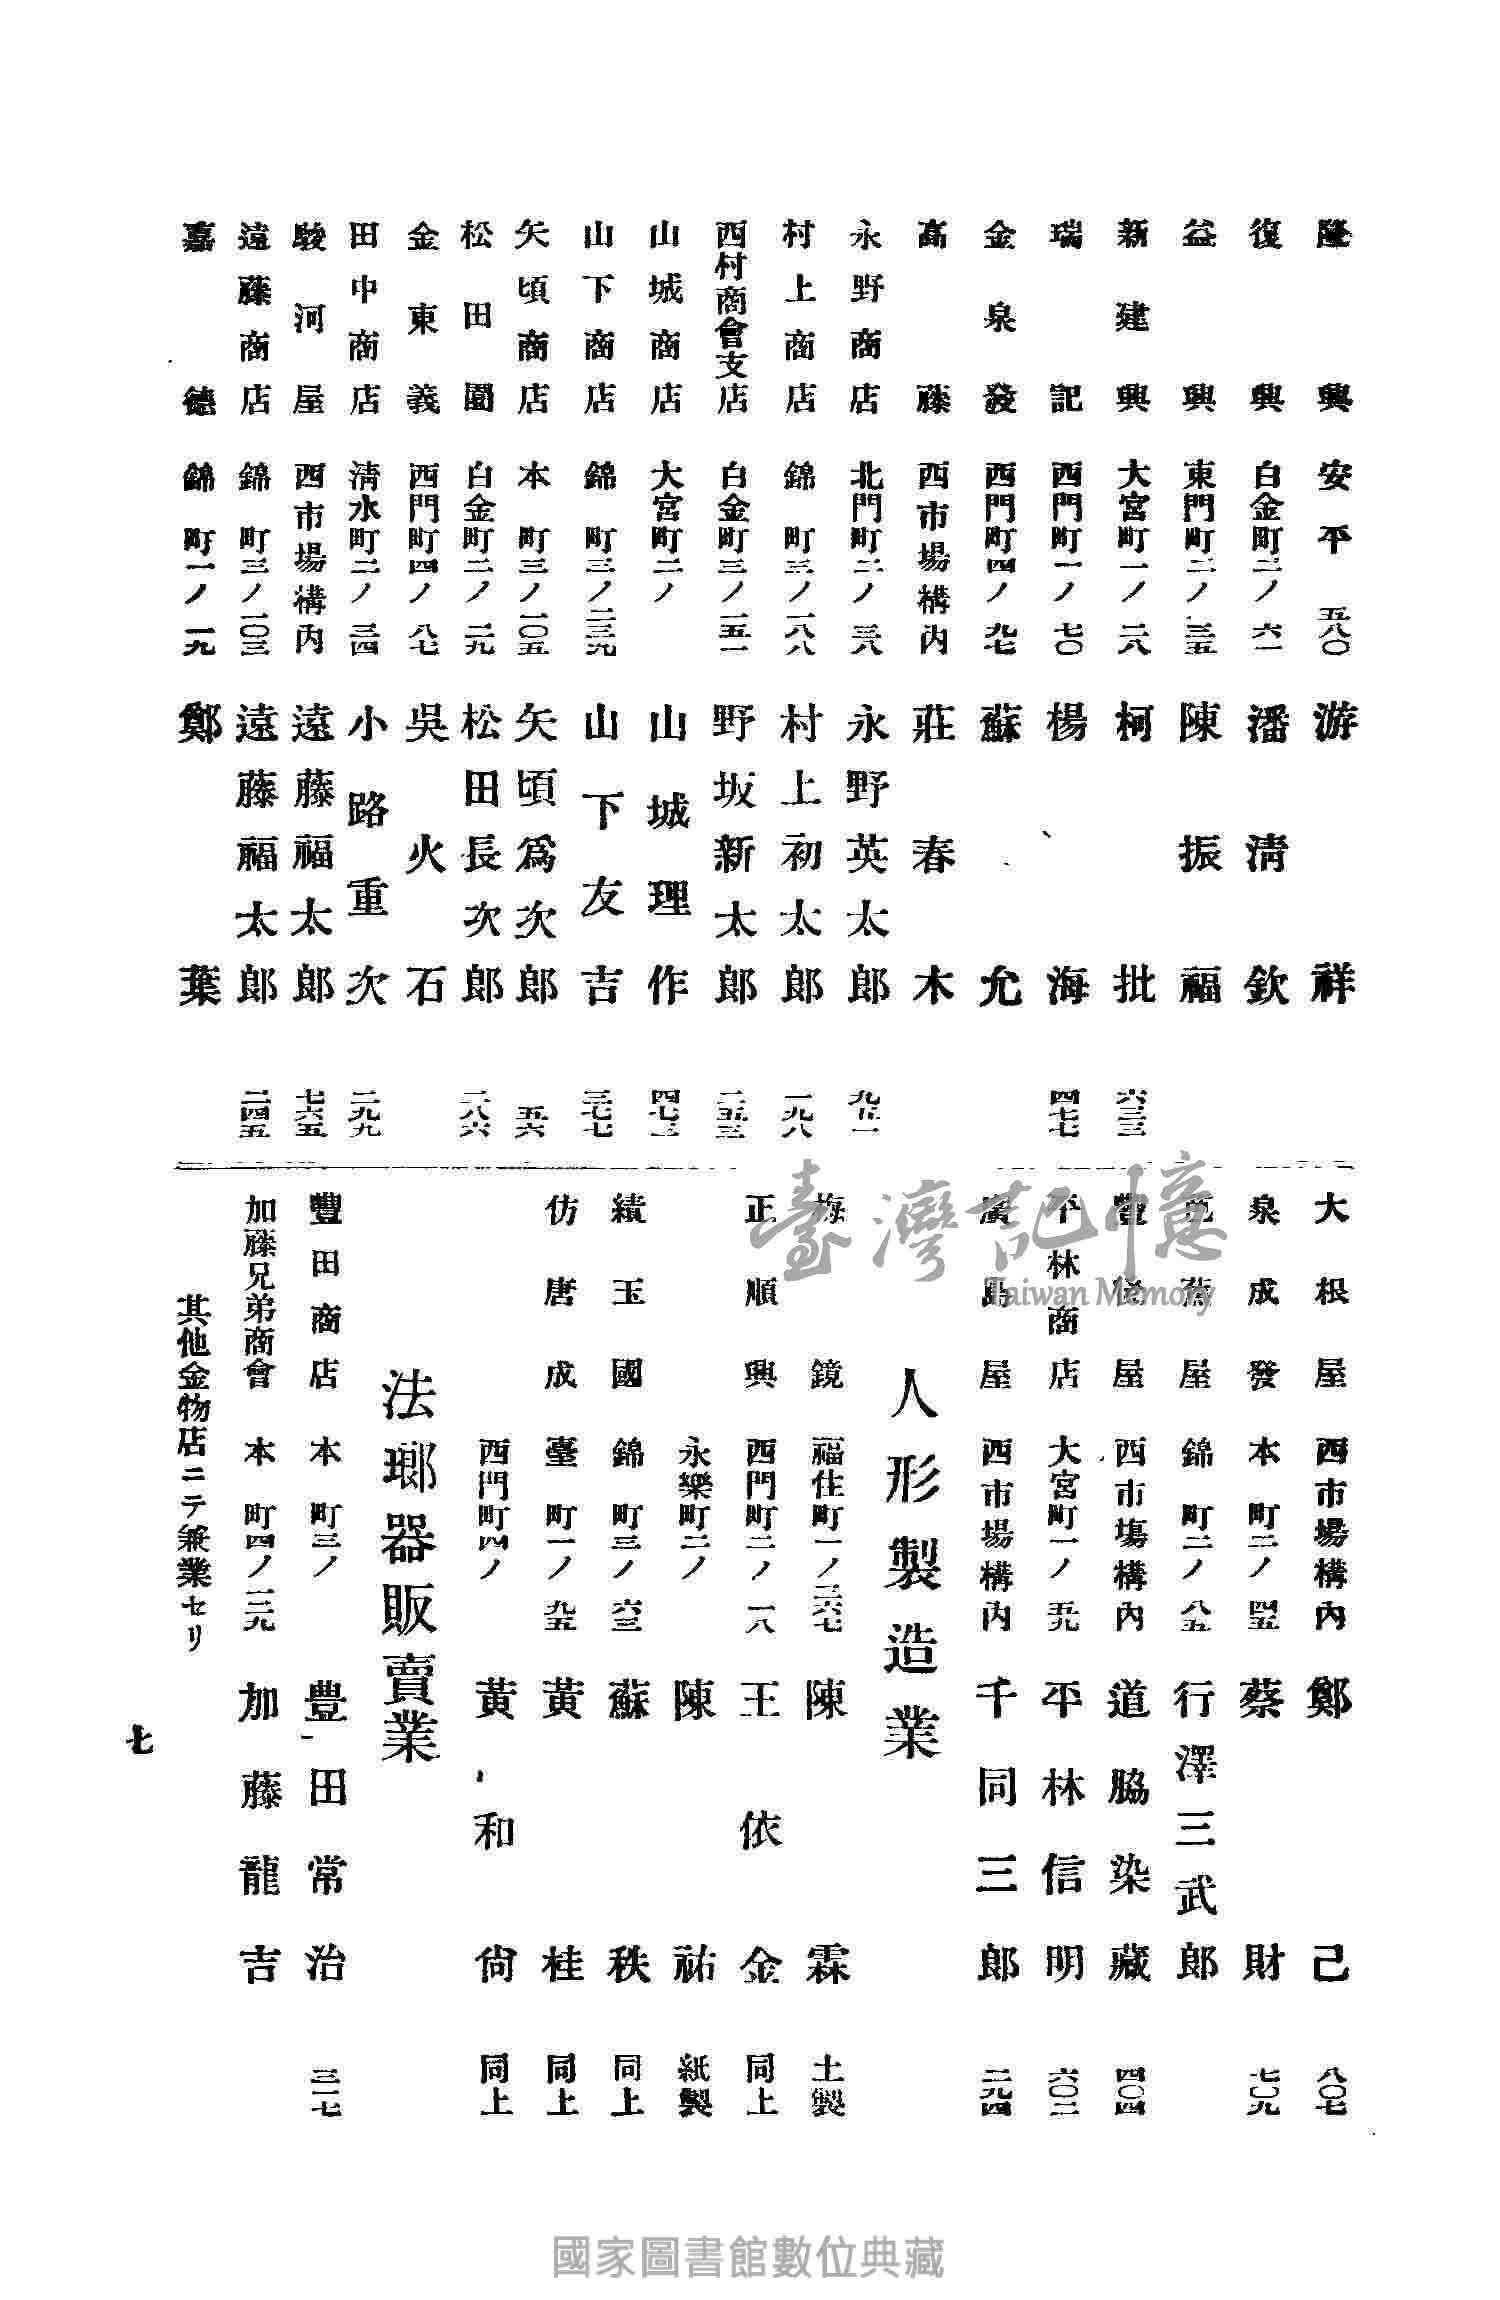 隆興 安平 五八〇 游祥
復興 白金町二ノ六一 潘清欽
益興 東門町二ノ三五 陳振福
新建興 大宮町一ノ二八 柯批 六三三
瑞記 西門町一ノ七〇 楊海 四七七
金泉發 西門町四ノ九七 蘇允
高藤 西市場構內 莊春木
永野商店 北門町二ノ三八 永野英太郎 九五一
村上商店 錦町三ノ一八八 村上初太郎 一九八
西村商會支店 白金町三ノ一五一 野坂新太郎 二五三
山城商店 大宮町二ノ 山城理作
山下商店 錦町三ノ二三九 山下友吉 三七七
矢頃商店 本町三ノ一〇五 矢頃爲次郎 五六
松田園 白金町二ノ二九 松田長次郎 二八六
金東義 西門町四ノ八七 吳火石
田中商店 清水町二ノ三四 小路重次 二九九
駿河屋 西市場構內 遠藤福太郎 七六五
遠藤商店 錦町三ノ一〇三 遠藤福太郎 二四五
嘉德 錦町一ノ一九 鄭葉
大根屋 西市場構內 鄭己 八〇七
泉成發 本町二ノ四五 蔡財 七〇九
屋 錦町二ノ八五 行澤三武郎
豐後屋 西市場構內 道脇染藏 四〇四
平林商店 大宮町一ノ五九 平林信明 六〇二
廣島屋 西市場構內 千同三郎 二九四
人形製造業
梅鏡 福住町一ノ二六七 陳霖 土製
正順興 西門町二ノ一八 王依金 同上
永樂町二ノ 陳祐 紙製
績玉國 錦町三ノ六三 蘇秩 同上
仿唐成 臺町一ノ九五 黃桂 同上
西門町四ノ 黃和尙 同上
法瑯器販賣業
豐田商店 本町三ノ 豊田常治 三一七
加藤兄弟商會 本町四ノ二九 加藤龍吉
其他金物店ニテ兼業セリ
七
臺灣記憶
Taiwan Memory
國家圖書館數位典藏